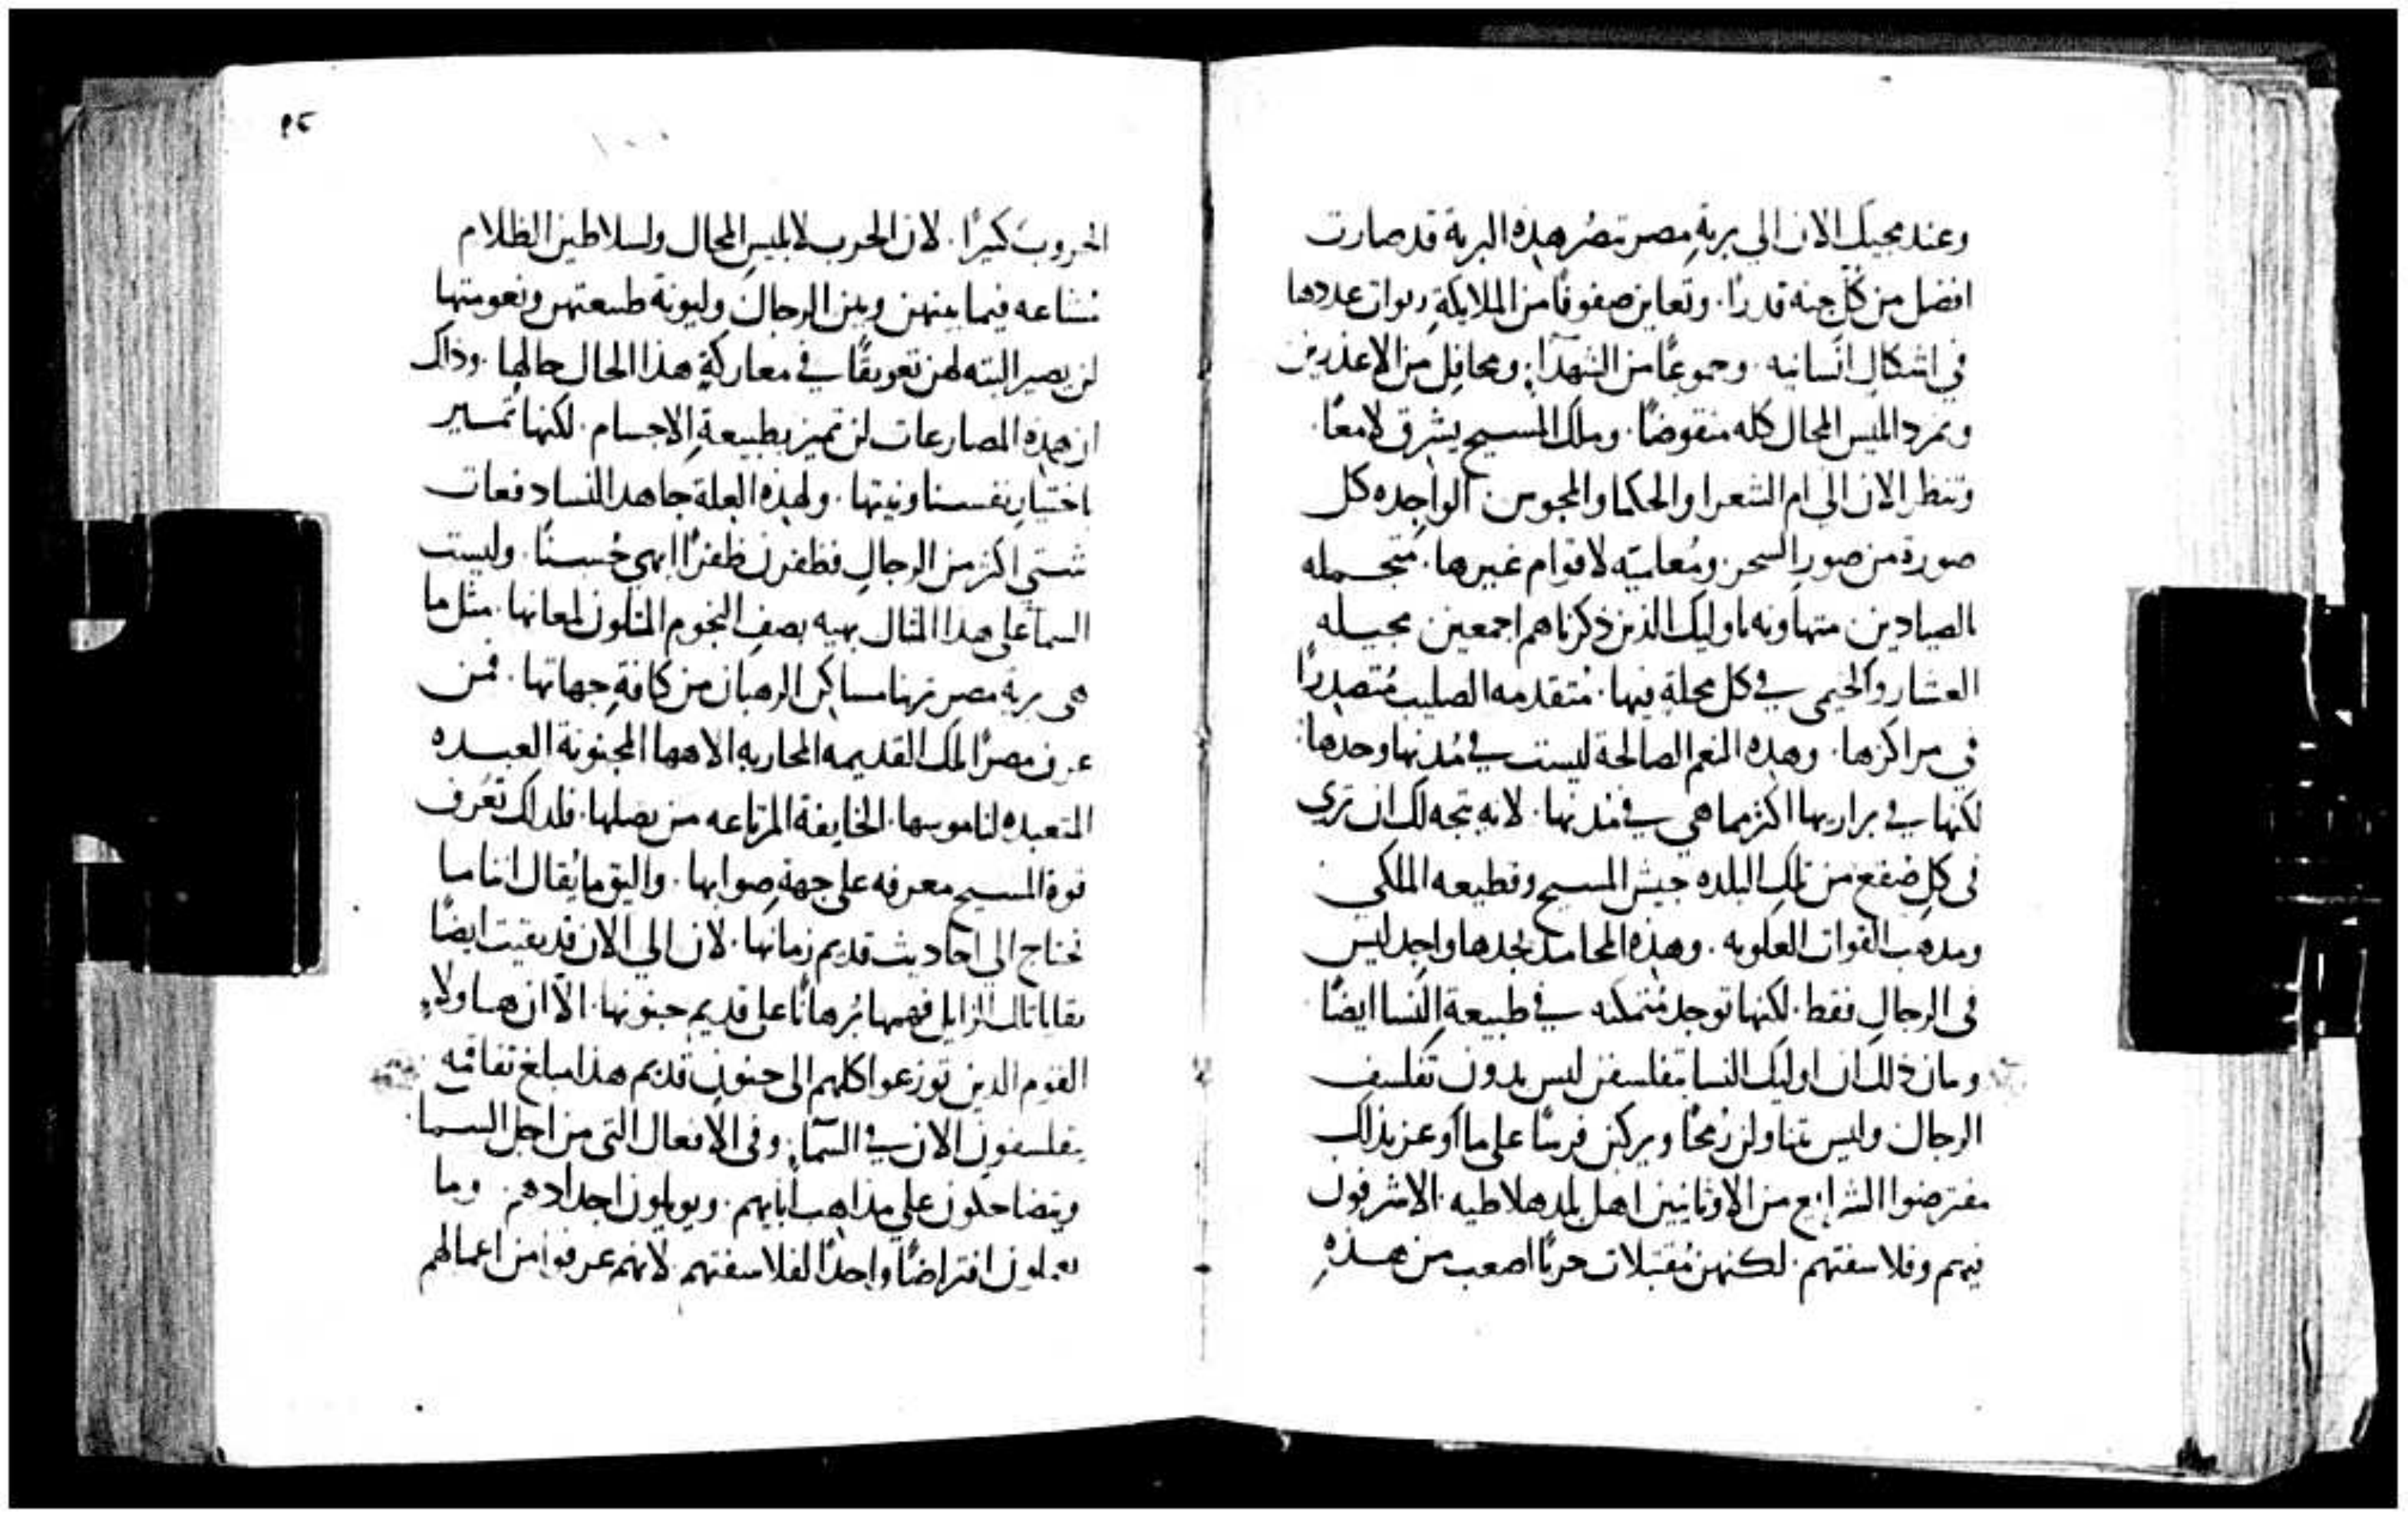 وعند مجيك الان الى برية مصر تبصر هذه البرية قد صارت
افضل من كل جنه قدرًا. وتعاين صفوفًا من الملايكة ربوات عددها
في اشكال انسانيه. وجموعًا من الشهدآ. ومحافل من
وتمرد ابليس المحال كله منقوضًا. وملك المسيح يشرق لامعًا.
وتنظر الان الى ام الشعرا والحكما والمجوس الواجده كل
صورة من صور السحر لاقوام غيرها. متجمله
بالصيادين متهاونه باوليك الذين ذكرناهم اجمعين
العشار والخيمى في كل محلة فيها. مُتقدمه الصليب مُتصدرًا
في مراكزها. وهذه النعم الصالحة ليست في مُدنها وحدها.
لكنها في براريها اكثر مما هي في مُدنها. لانه يتجه لك ان تري
فى كل صُقع من تلك البلده جيش المسيح وقطيعه الملكي
ومذهب القوات العلويه. وهذه المحامد تجدها واجد ليس
فى الرجال فقط. لكنها توجد مُتمكنه في طبيعة النسا ايضًا
ذلك ان اوليك النسا تفلسفن ليس بدون تفلسف
الرجال وليس يتناولن رُمحًا ويركبن فرسًا على ما اوعز بذلك
مفترضوا الشرايع من الاوثانيين اهل الاشرفون
فيهم وفلاسفتهم. لكنهن مُقتبلات حربًا اصعب من هذهِ
٩٤
الحروب كثيرًا. لان الحرب لابليس المحال ولسلاطين الظلام
مشاعه فيما بينهن وبين الرجال وليونة طبيعتهن ونعومتها
لن يصير البته لهن تعويقًا في معاركةِ هذا الحال حالها. وذاك
ان هذه المصارعات لن تميز بطبيعةِ الاجسام. لكنها
باختيار نفسنا ونيتها. ولهذه العلة جاهد النسا دفعات
شتي اكثر من الرجال فظفرن ظفرًا ابهي حُسنًا. وليست
السمآ على هذا المثال بهيه بصفِ النجوم المتلون لمعانها. مثل ما
هى برية مصر مساكن الرهبان من كافةِ جهاتها. فمن
عرف مصر تلك القديمه المحاربه الاهها المجنونة العبده
المتعبده الخايفة المرتاعه من بصلها. فلذلك تعرف
قوة المسيح معرفه على جهةِ صوابها. واليق ما يُقال اننا ما
نحتاج الي احاديث قديم زمانها. لان الي الان قد بقيت ايضًا
بقايا تلك فيها بُرهانًا على قديم جنونها. الآ ان هاولاء
القوم الذين توزعوا كلهم الى جنون قديم هذا مبلغ
يتفلسفون الان في السمآ. وفى الافعال التى من اجل السما
ويتضاحكون علي مذاهب ابايهم. اجدادهم. وما
افتراضًا واحدًا لفلاسفتهم. لانهم عرفوا من اعمالهم